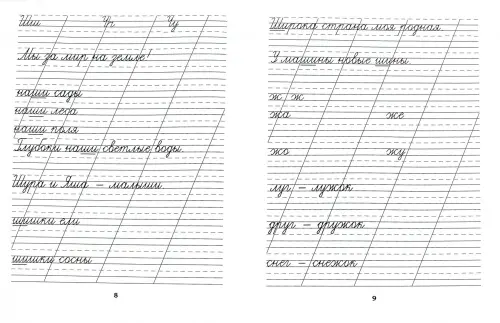 Мы за мир на земле!
наши сады
наши леса
наши поля
Глубоки наши светлые воды.
Шура и Яша – малыши.
шишки ели
шишки сосны
8
Широка страна моя родная.
У машины новые шины.
ж ж
жа же
жо жу
луг – лужок
друг – дружок
снег – снежок
9